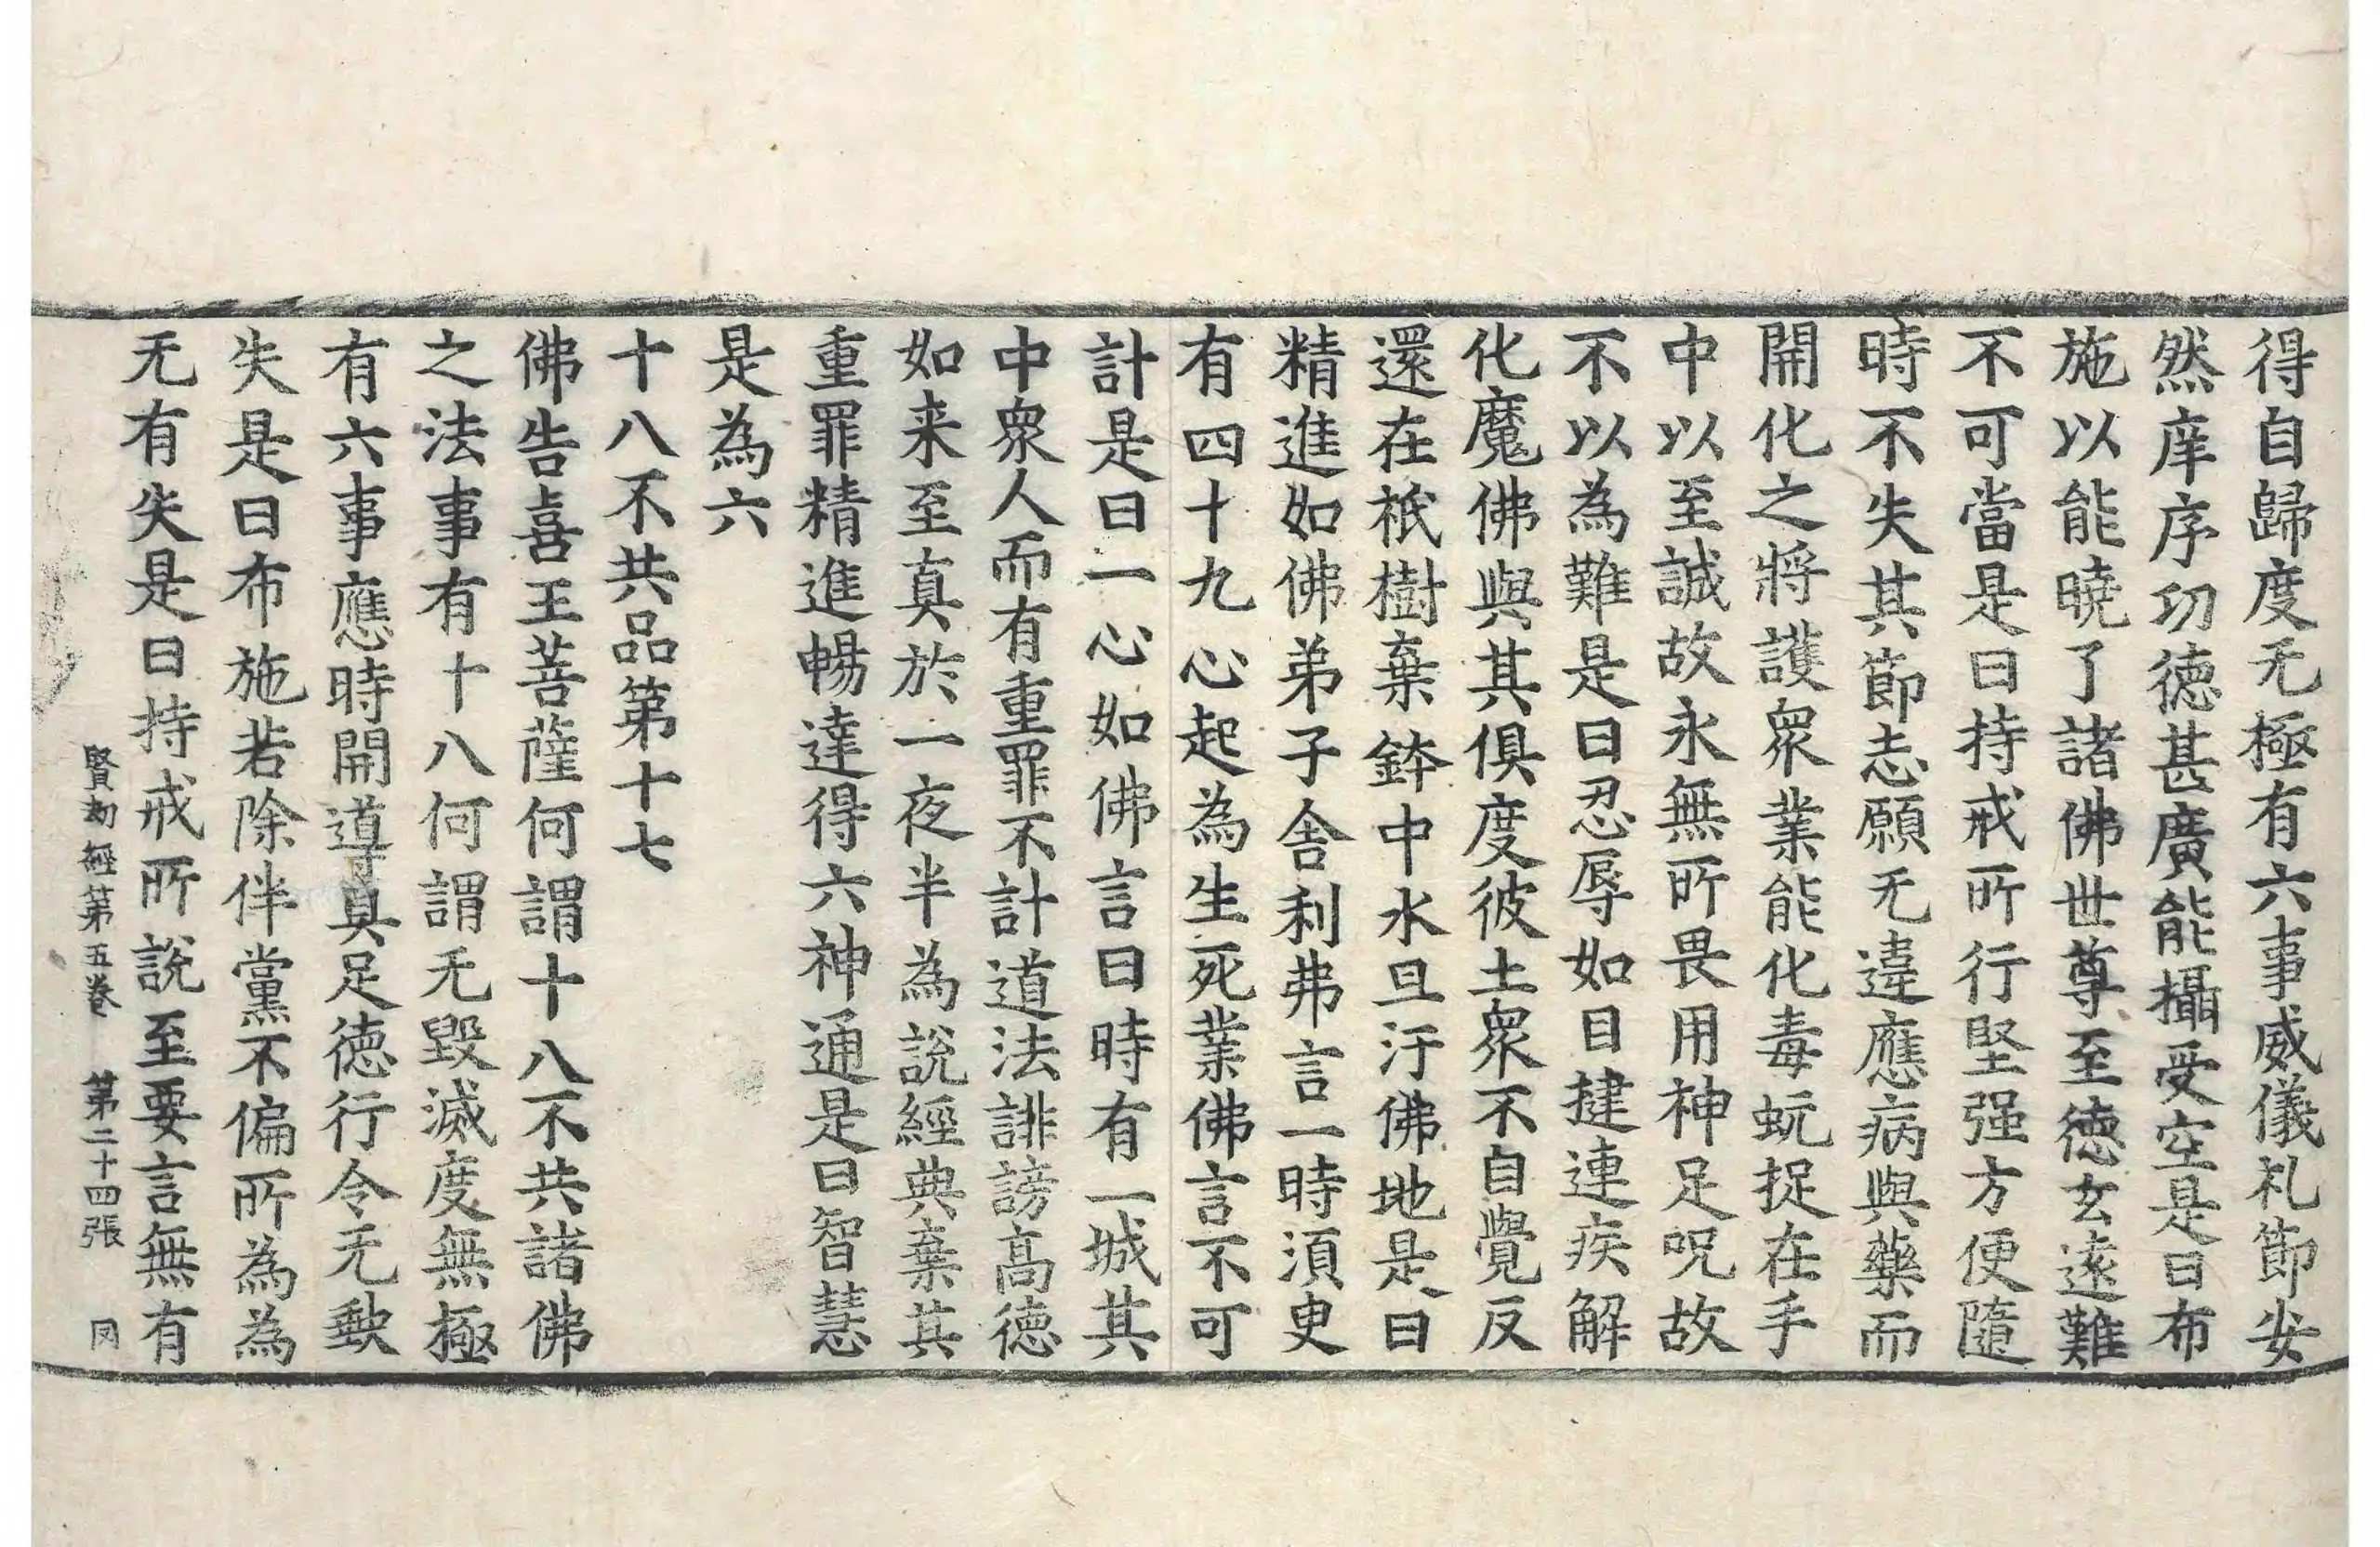 得自歸度无極有六事威儀礼節安
然庠序功德甚廣能攝受空是曰布
施以能曉了諸佛世尊至德玄遠難
不可當是曰持戒所行堅强方便隨
時不失其節志願无違應病與藥而
開化之將護衆業能化毒蚖捉在手
中以至誠故永無所畏用神足呪故
不以為難是曰忍辱如目揵連疾解
化魔佛與其俱度彼土衆不自覺反
還在祇樹棄鉢中水旦汙佛地是曰
精進如佛弟子舍利弗言一時須臾
有四十九心起為生死業佛言不可
計是曰一心如佛言曰時有一城其
中衆人而有重罪不計道法誹謗高德
如来至真於一夜半為說經典棄其
重罪精進暢達得六神通是曰智慧
是為六
十八不共品第十七
佛告喜王菩薩何謂十八不共諸佛
之法事有十八何謂无毀滅度無極
有六事應時開導具足德行令无缺
失是曰布施若除伴黨不偏所為為
无有失是曰持戒所說至要言無有
賢劫經第五卷 第二十四張